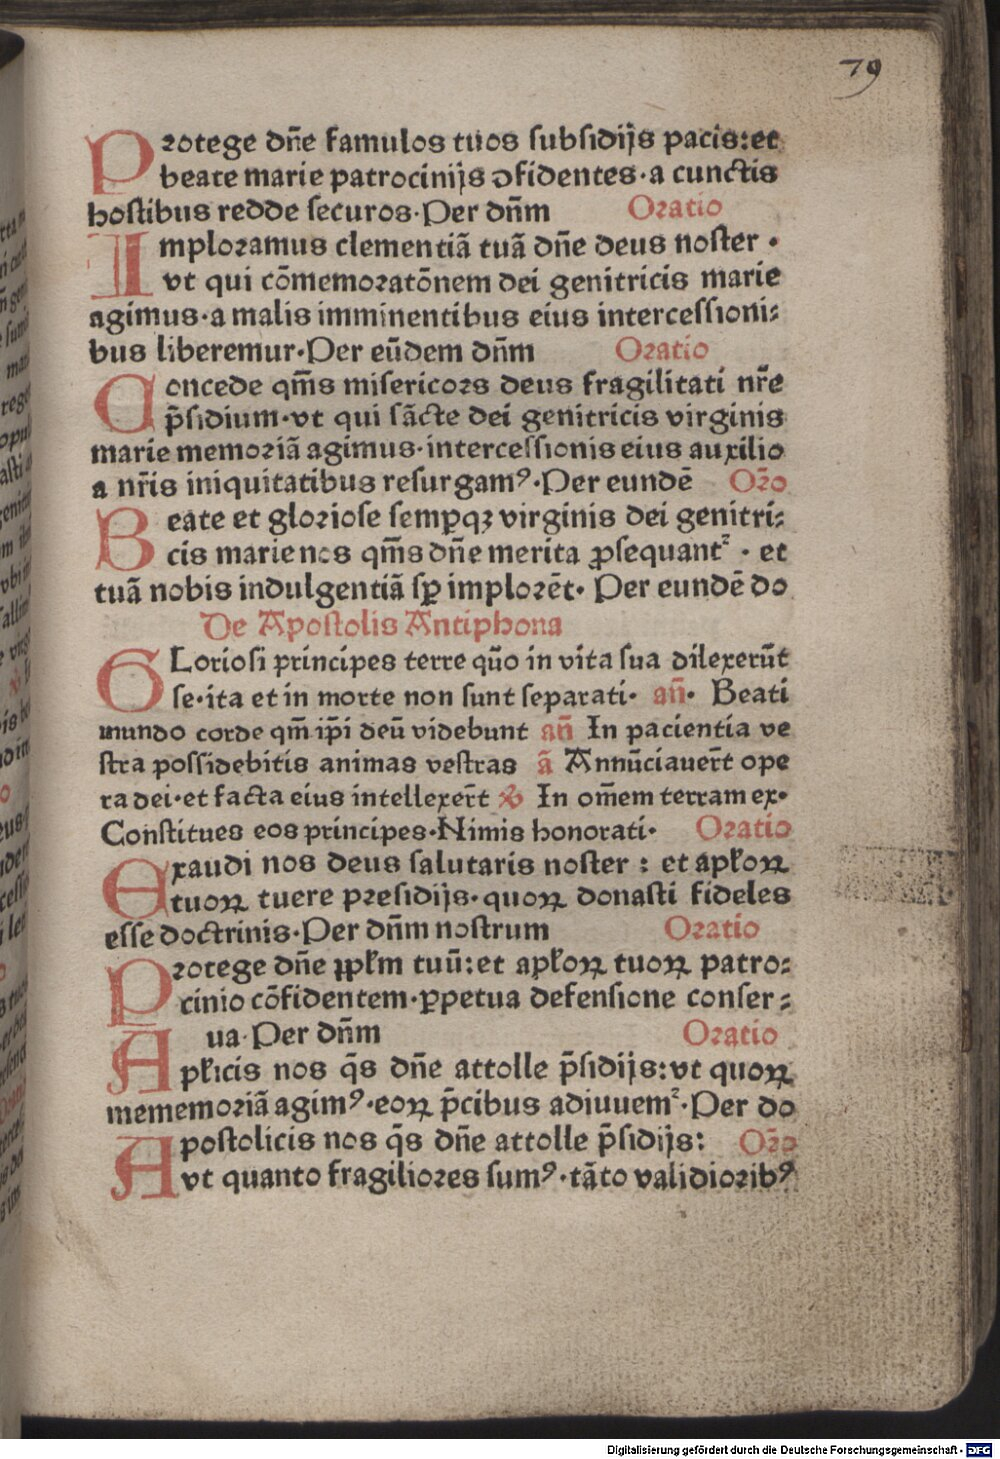 79
Protege dn̄e famulos tuos ſubſidijs pacis:et
beate marie patrocinijs ↄfidentes·a cunctis
hoſtibus redde ſecuros·Per dn̄m Oꝛatio
Imploꝛamus clementiā tuā dn̄e deus noſter ·
vt qui cōmemoꝛatōnem dei genitricis marie
agimus·a malis imminentibus eius interceſſioni⸗
bus liberemur·Per eūdem dn̄m Oꝛatio
Concede qm̄s miſericoꝛs deus fragilitati nr̄e
p̄ſidium·vt qui ſācte dei genitricis virginis
marie memoꝛiā agimus·interceſſionis eius auxilio
a nr̄is iniquitatibus reſurgamꝰ·Per eundē Oꝛ̄o
Beate et gloꝛioſe ſemꝑqꝫ virginis dei genitri⸗
cis marie nos qm̄s dn̄e merita ꝓſequantᷣ · et
tuā nobis indulgentiā ſꝑ imploꝛēt· Per eundē do
De Apoſtolis Antiphona
GLorioſi principes terre quō in vita ſua dilexerūt
ſe·ita et in morte non ſunt ſeparati· an̄· Beati
mundo corde qm̄ ip̄i deū videbunt an̄ In pacientia ve
ſtra poſſidebitis animas veſtras ā Annūciauer̄t ope
ra dei·et facta eius intellexer̄t ꝟ In om̄em terram ex·
Conſtitues eos principes·Nimis honorati· Oꝛatio
Exaudi nos deus ſalutaris noſter : et apl̄oꝝ
tuoꝝ tuere pꝛeſidijs·quoꝝ donaſti fideles
eſſe doctrinis·Per dn̄m noſtrum Oꝛatio
Pꝛotege dn̄e ꝓpl̄m tuū:et apl̄oꝝ tuoꝝ patro⸗
cinio cōfidentem·ꝑpetua defenſione conſer⸗
ua·Per dn̄m Oꝛatio
Apl̄icis nos q̄s dn̄e attolle p̄ſidijs:vt quoꝝ
mememoꝛiā agimꝰ·eoꝝ p̄cibus adiuuemᷣ·Per do
Apoſtolicis nos q̄s dn̄e attolle p̄ſidijs: Oꝛ̄o
vt quanto fragilioꝛes ſumꝰ·tāto validioꝛibꝰ
Digitalisierung gefördert durch die Deutsche Forschungsgemeinschaft - DFG